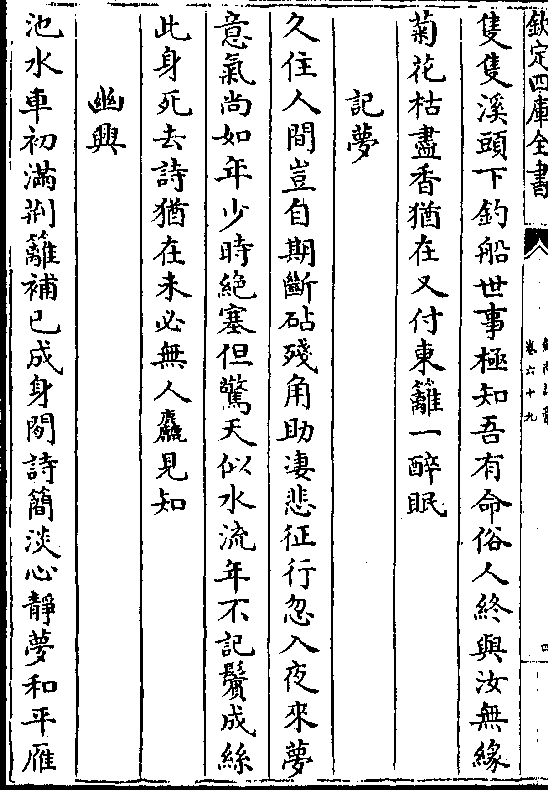 欽定四庫全書
卷六十九
隻隻溪頭下釣船世事極知吾有命俗人終與汝無緣
菊花枯盡香猶在又付東籬一醉眠
記夢
久住人間豈自期斷砧殘角助淒悲征行忽入夜來夢
意氣尚如年少時絶塞但驚天似水流年不記鬢成絲
此身死去詩猶在未必無人麤見知
幽興
池水車初滿荆籬補已成身閒詩簡淡心靜夢和平雁